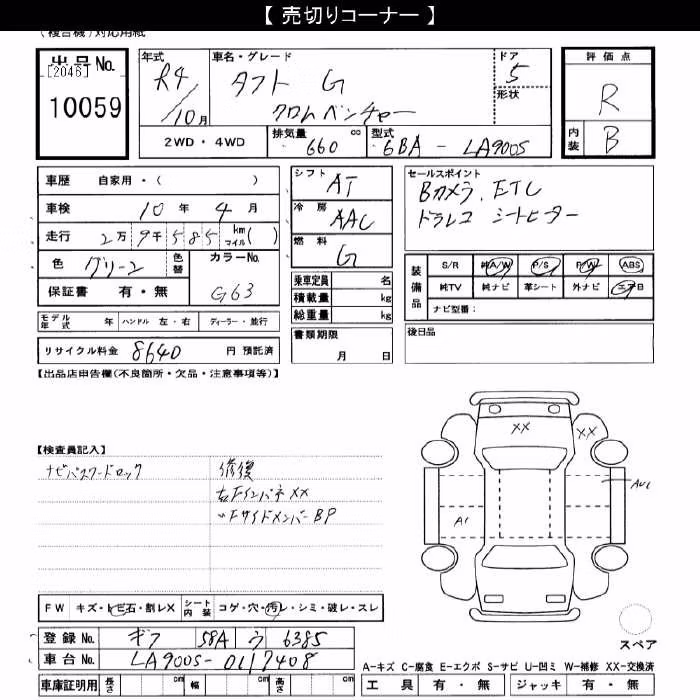 【 売切りコーナー 】
(複合機)対応用紙
出品No.
[2046]
10059
年式
R4/10月
車名・グレード
タフト G
クロムベンチャー
ドア
5
形状
2WD・4WD
排気量 660 cc
型式 6BA - LA900S
評価点
R
内装 B
車歴 自家用・( )
車検 10年 4月
走行 2万9千585 km マイル( )
色 グリーン 色替
カラーNo.
G63
保証書 有・無
シフト AT
冷房 AAC
燃料 G
乗車定員 名
積載量 kg
総重量 kg
セールスポイント
Bカメラ. ETC
ドラレコ シートヒーター
装備品
S/R 純A/W P/S P/W ABS
純TV 純ナビ 革シート 外ナビ エアB
ナビ型番:
モデル年式 年 ハンドル 左・右 ディーラー・並行
リサイクル料金 8640 円 預託済
書類期限
月 日
後日品
【出品店申告欄(不良箇所・欠品・注意事項等)】
【検査員記入】
ナビパスワードロック
修復
右FインパネXX
〃FサイドメンバーBP
XX
XX
A1
FW キズ・トビ石・割レX シート内装 コゲ・穴・汚レ・シミ・破レ・スレ
登録No. ギフ 58A ウ 6385
車台No. LA900S-0117408
車庫証明用 長さ cm 幅 cm 高さ cm
スペア
A-キズ C-腐食 E-エクボ S-サビ U-凹ミ W-補修 XX-交換済
工具 有・無 ジャッキ 有・無